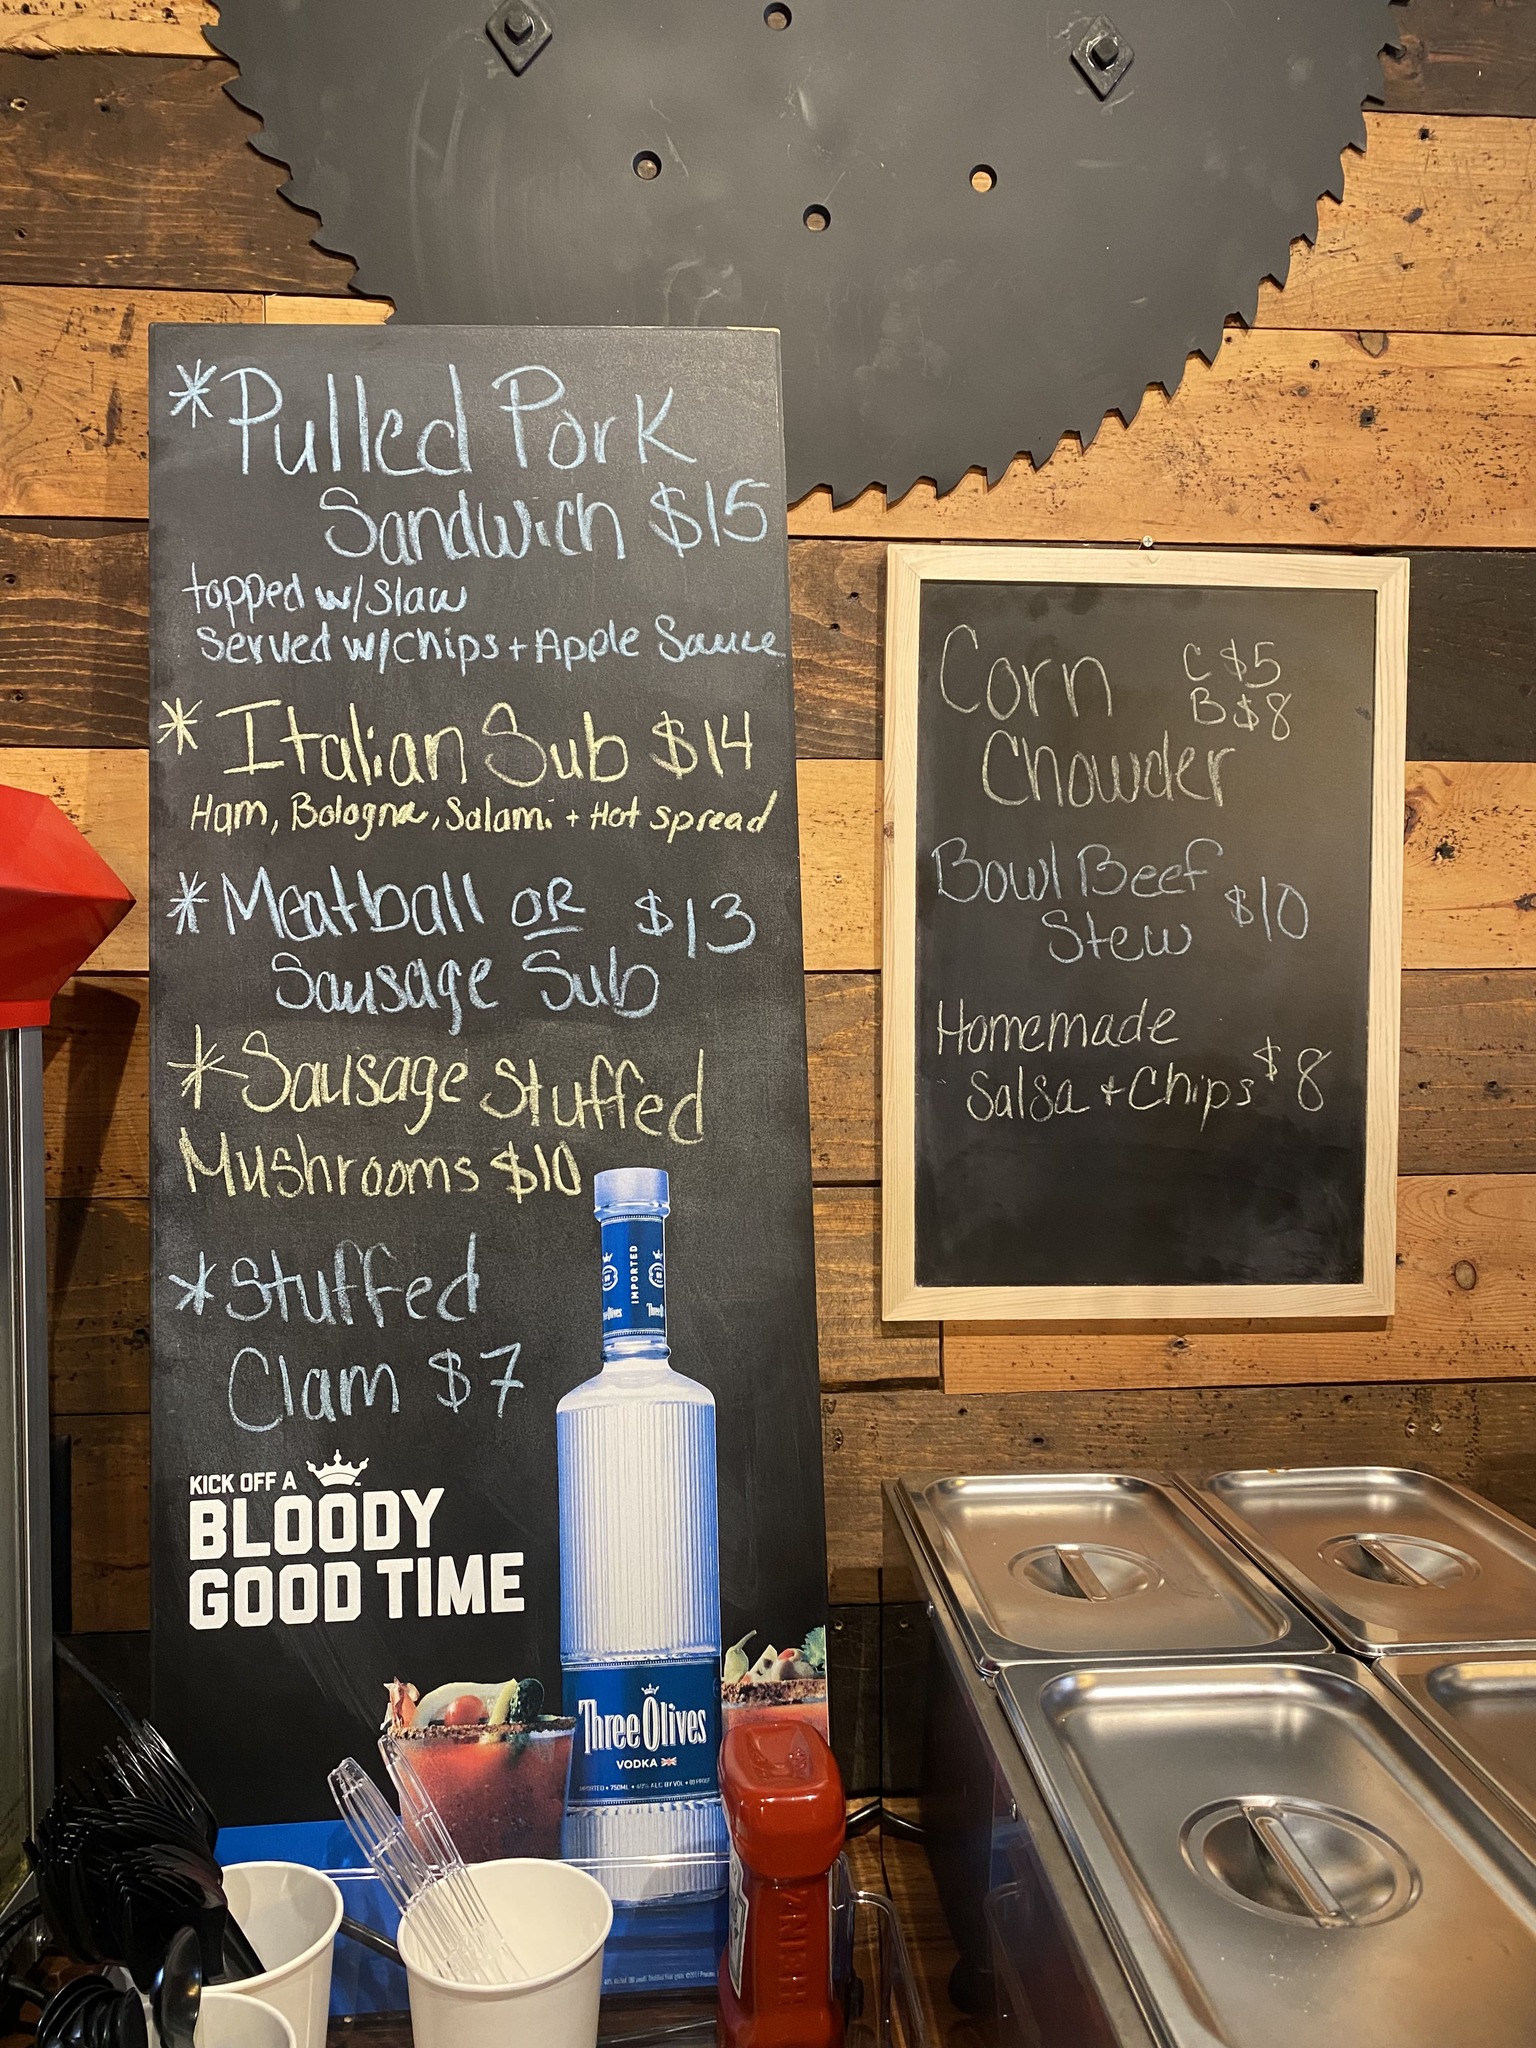 *Pulled Pork
Sandwich $15
topped w/slaw
served w/chips + Apple Sauce
*Italian Sub $14
Ham, Bologna, Salami + Hot spread
*Meatball OR $13
Sausage Sub
*Sausage Stuffed
Mushrooms $10
*Stuffed
Clam $7
KICK OFF A
BLOODY
GOOD TIME
IMPORTED
Three Olives
VODKA
Corn C $5
B $8
Chowder
Bowl Beef
Stew $10
Homemade
Salsa + Chips $8